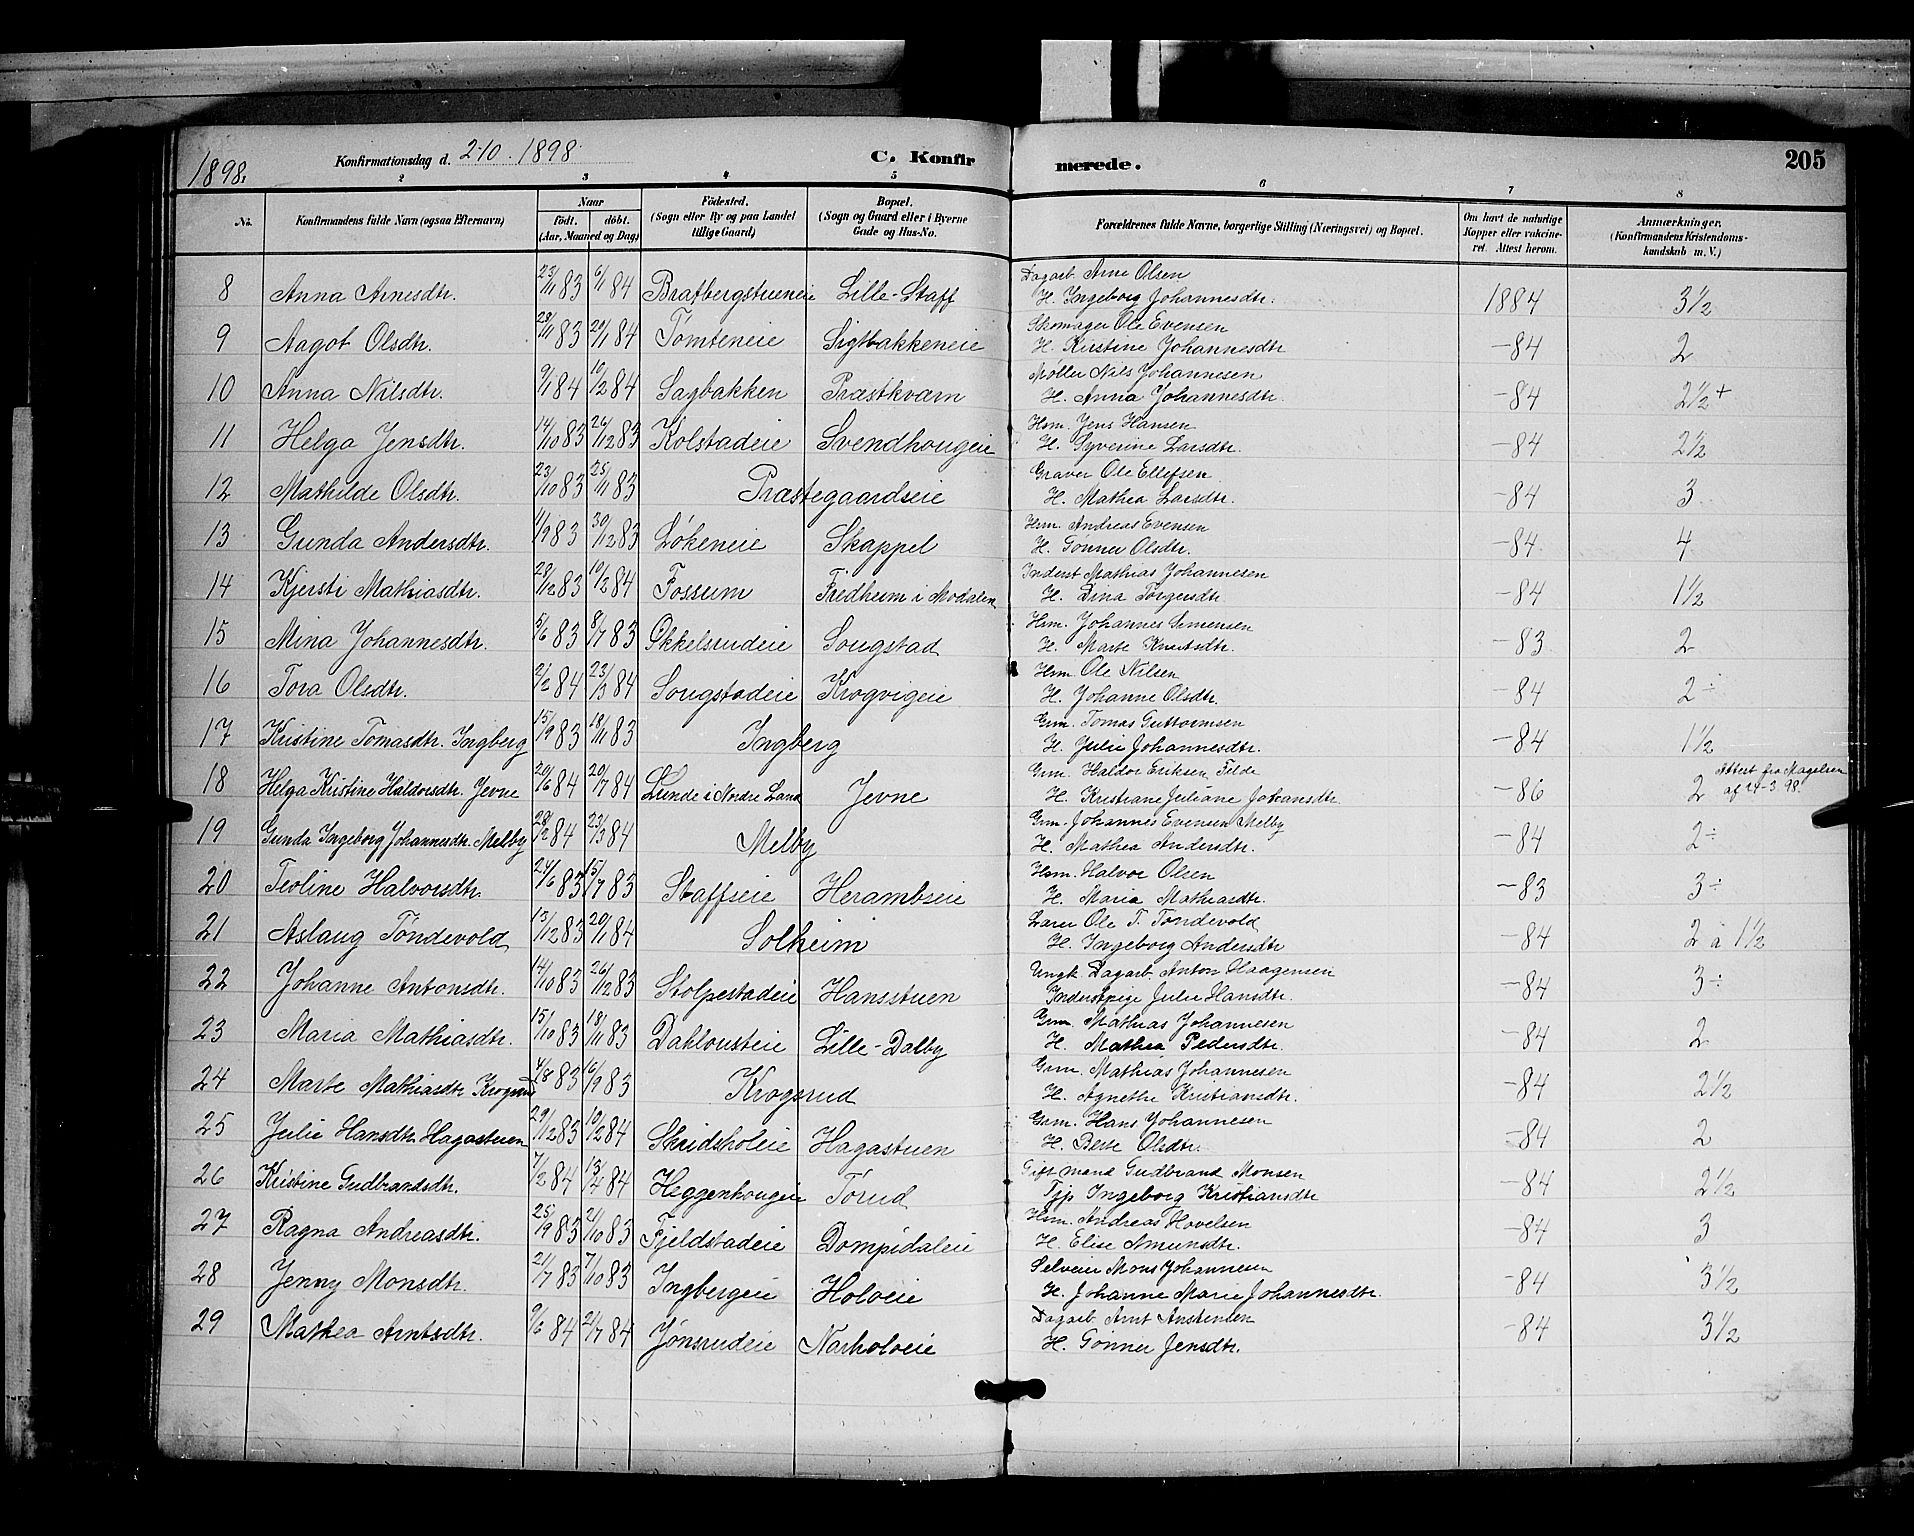 1898. Konfirmationsdag d. 2-10-1898 C. Konfirmerede. 205
2 3 4 5 6 7 8
No. Konfirmandens fulde Navn (ogsaa Efternavn) Naar födt. döbt. (Aar, Maaned og Dag) Födested. (Sogn eller By og paa Landet tillige Gaard) Bopæl. (Sogn og Gaard eller i Byerne Gade og Hus-No. Forældrenes fulde Navne, borgerlige Stilling (Næringsvei) og Bopæl. Om havt de naturlige Kopper eller vakcineret. Attest herom. Anmærkninger. (Konfirmandens Kristendomskundskab m. V.)
8 Anna Arnesdtr. 23/11 83 6/1 84 Bratbergstueneie Lille-Staff Dagarb. Arne Olsen
H. Ingeborg Johannesdtr. 1884 3½
9 Aagot Olsdtr. 28/11 83 20/1 84 Tomteneie Sigtbakkeneie Skomager Ole Evensen
H. Kirstine Johannesdtr -84 2
10 Anna Nilsdtr. 9/1 84 10/2 84 Sagbakken Præstkværn Møller Nils Johannesen
H. Anna Johannesdtr. -84 2½+
11 Helga Jensdtr. 14/10 83 26/12 83 Kolstadeie Svendhougeie Hsm. Jens Hansen
H. Syverine Larsdtr. -84 2½
12 Mathilde Olsdtr. 23/10 83 25/11 83 Præstegaardseie Graver Ole Ellefsen
H. Mathea Larsdtr. -84 3
13 Gunda Andersdtr. 4/9 83 30/12 83 Løkeneie Skappel Hsm. Andreas Evensen
H. Gønner Olsdtr. -84. 4
14 Kjersti Mathiasdtr. 28/12 83 10/2 84 Fossum Fredheim i Modalen Inderst Mathias Johannesen
H. Dina Torgersdtr -84 1½
15 Mina Johannesdtr. 5/6 83 8/7 83 Økkelsrudeie Sougstad Hsm. Johannes Simensen
H. Marte Knutsdtr. -83 2
16 Tora Olsdtr. 2/2 84 23/3 84 Sougstadeie Krogvigeie Hsm Ole Nilsen
H. Johanne Olsdtr. -84 2÷
17 Kristine Tomasdtr. Ingberg 15/9 83 18/11 83 Ingberg Grm. Tomas Guttormsen
H. Julie Johannesdtr. -84 1½
18 Helga Kristine Haldorsdtr. Jevne 20/6 84 20/7 84 Lunde i Nordre Land Jevne Grm. Haldor Eriksen Felde
H. Kristiane Juliane Johansdtr. -86 2 Attest fra Magelsen
af 24-3 98.
19 Gunda Ingeborg Johannesdtr. Melby 28/2 84 23/3 84 Melby Grm. Johannes Evensen Melby
H. Mathea Andersdtr. -84 2÷
20 Teoline Halvorsdtr. 24/6 83 15/7 83 Staffseie Herambseie Hsm. Halvor Olsen
H. Maria Mathiasdtr. -83 3÷
21 Aslaug Tøndevold 13/12 83 20/1 84 Solheim Lærer Ole T. Tøndevold
H. Ingeborg Andersdtr -84 2 à 1½
22 Johanne Antonsdtr. 14/10 83 26/12 83 Stolpestadeie Hansstuen Ungk. Dagarb. Anton Haagensen
Inderstpige Julie Hansdtr. -84 3÷
23 Maria Mathiasdtr. 15/10 83 18/11 83 Dahlousteie Lille-Dalby Grm. Mathias Johannesen
H. Mathea Pedersdtr. -84 2
24 Marte Mathiasdtr Krogsrud 4/8 83 16/9 83 Krogsrud Grm. Mathias Johannesen
H. Agnethe Kristiansdtr. -84 2½
25 Julie Hansdtr. Hagastuen 29/12 83 10/2 84 Skridsholeie Hagastuen Grm. Hans Johannesen
H. Berte Olsdtr. -84 2
26 Kristine Gudbrandsdtr. 7/2 84 13/4 84 Heggenhougeie Torud Gift mand Gudbrand Monsen
Tjp Ingeborg Kristiansdtr -84 2½
27 Ragna Andreasdtr. 25/9 83 21/10 83 Fjeldstadeie Dompidaleie Hsm. Andreas Hovelsen
H. Elise Amundsdtr. -84 3
28 Jenny Monsdtr. 21/7 83 7/10 83 Ingbergeie Holoeie Selveier Mons Johannesen
H. Johanne Marie Johannesdtr. -84 3½
29 Mathea Arntsdtr. 9/6 84 21/7 84 Jønsrudeie Narholoeie Dagarb Arnt Anstensen
H. Gønner Jensdtr. -84 3½